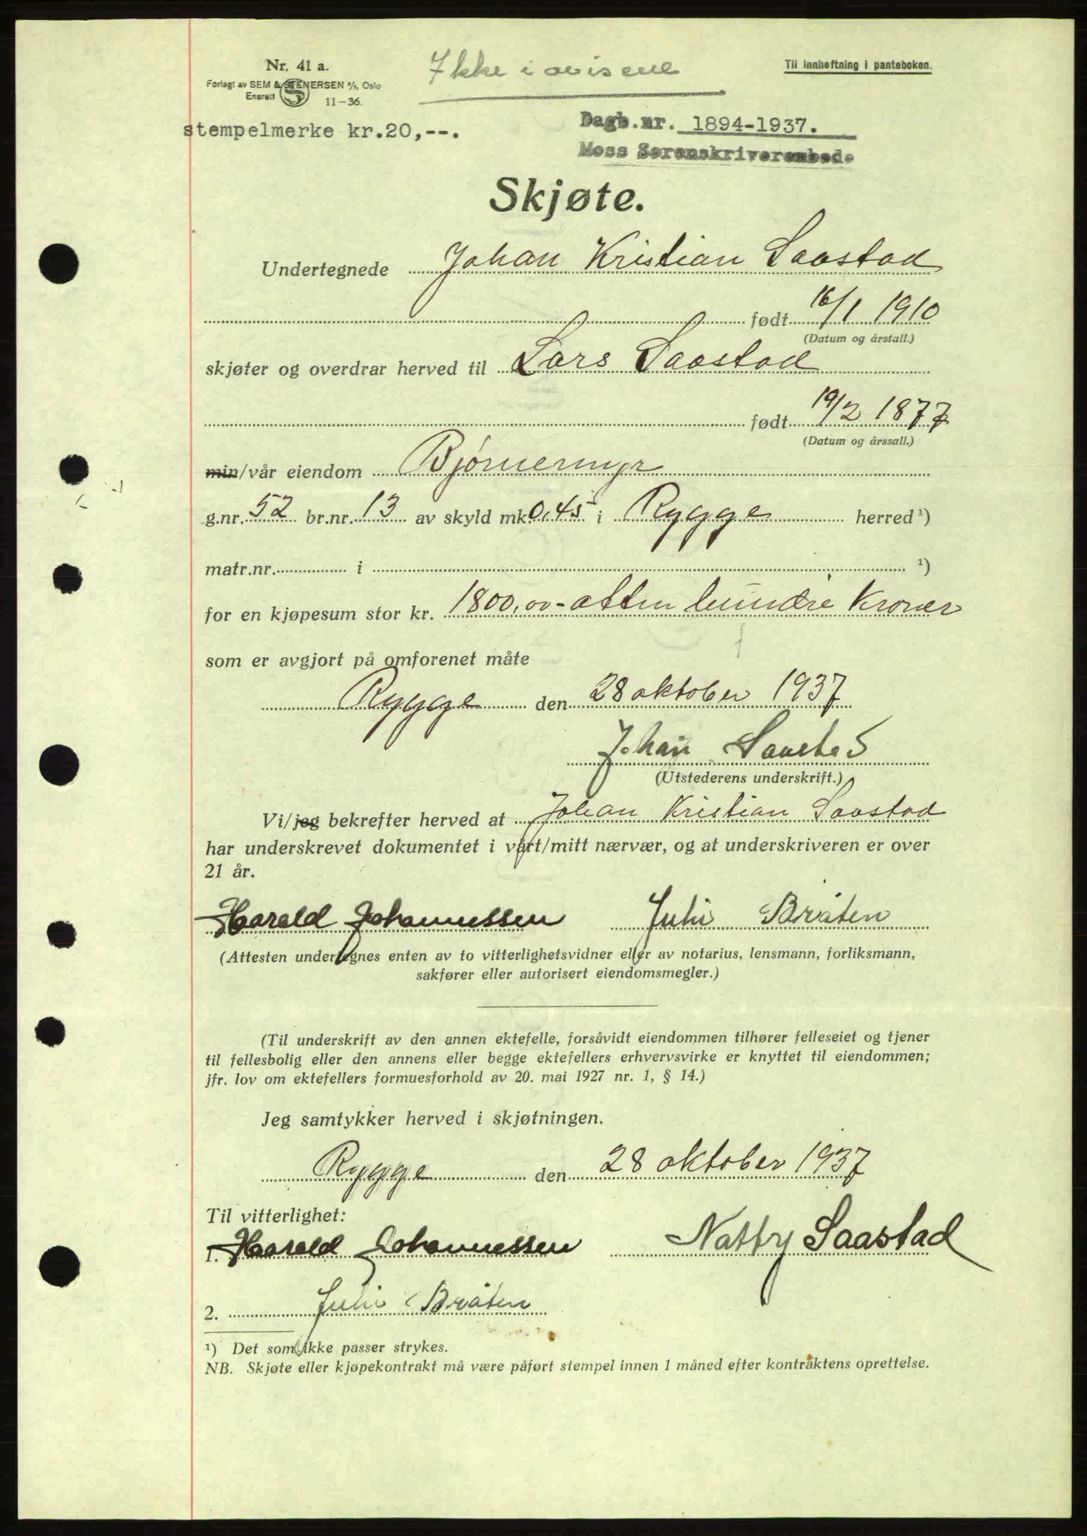 Nr. 41 a.
Forlagt av SEM & STENERSEN A/S, Oslo
Enerett S 11—36.
Ikke i avisene
Til innheftning i panteboken.
stempelmerke kr.20,--.
Dagb.nr. 1894-1937.
Moss Sorenskriverembede
Skjøte.
Undertegnede Johan Kristian Saastad
født 16/1 1910
(Datum og årstall.)
skjøter og overdrar herved til Lars Saastad
født 19/2 1877
(Datum og årssall.)
min/vår eiendom Bjørnemyr
g.nr. 52 br.nr. 13 av skyld mk 0,45 i Rygge herred ¹)
matr.nr. i ¹)
for en kjøpesum stor kr. 1800,00 - atten hundre Kroner
som er avgjort på omforenet måte
Rygge den 28 oktober 1937
Johan Saastad
(Utstederens underskrift.)
Vi/jeg bekrefter herved at Johan Kristian Saastad
har underskrevet dokumentet i vårt/mitt nærvær, og at underskriveren er over
21 år.
Harald Johannessen Juhi Bråten
(Attesten undertegnes enten av to vitterlighetsvidner eller av notarius, lensmann, forliksmann,
sakfører eller autorisert eiendomsmegler.)
(Til underskrift av den annen ektefelle, forsåvidt eiendommen tilhører felleseiet og tjener
til fellesbolig eller den annens eller begge ektefellers erhvervsvirke er knyttet til eiendommen;
jfr. lov om ektefellers formuesforhold av 20. mai 1927 nr. 1, § 14.)
Jeg samtykker herved i skjøtningen.
Rygge den 28 oktober 1937
Til vitterlighet:
1. Harald Johannessen Nathy Saastad
2. Juhi Bråten
¹) Det som ikke passer strykes.
NB. Skjøte eller kjøpekontrakt må være påført stempel innen 1 måned efter kontraktens oprettelse.